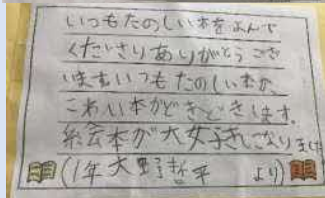 いつもたのしい本をよんで
くださりありがとうござ
いますいつもたのしい本か、
こわい本かどきどきします。
絵本が大好きになりました
(1年大野哲平 より)